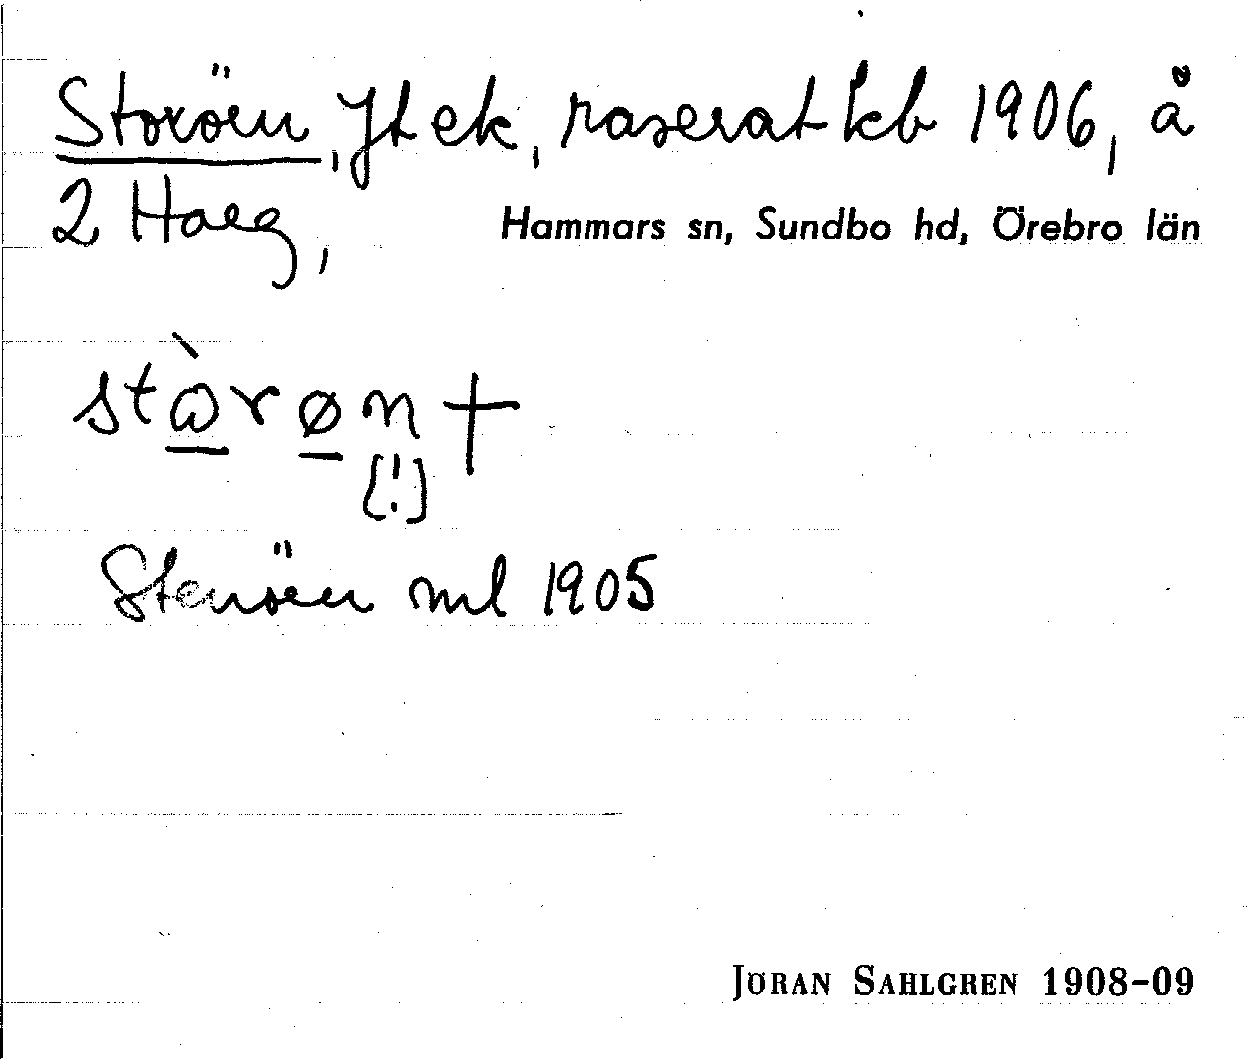 Storöen, Jt ek, raserat kb 1906, å
2 Haeg,
Hammars sn, Sundbo hd, Örebro län
stɷ̀røn †
[!]
Stenöen ml 1905
JÖRAN SAHLGREN 1908-09